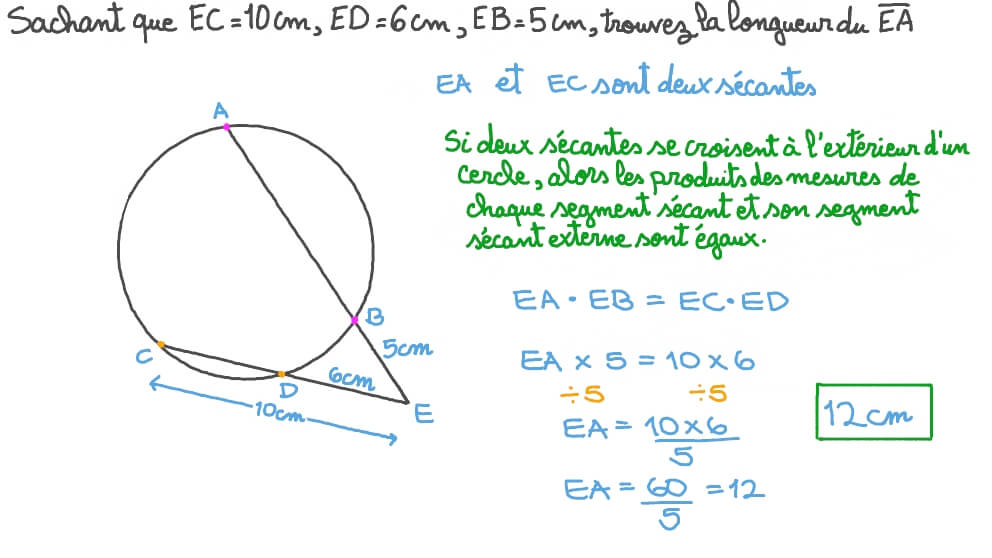 Sachant que EC = 10 cm, ED = 6 cm, EB = 5 cm, trouvez la longueur du E̅A̅
EA et EC sont deux sécantes
Si deux sécantes se croisent à l'extérieur d'un
cercle, alors les produits des mesures de
chaque segment sécant et son segment
sécant externe sont égaux.
A
B
C
D
E
5cm
6cm
10cm
EA · EB = EC · ED
EA × 5 = 10 × 6
÷5 ÷5
EA = 10×6/5
EA = 60/5 = 12
12 cm